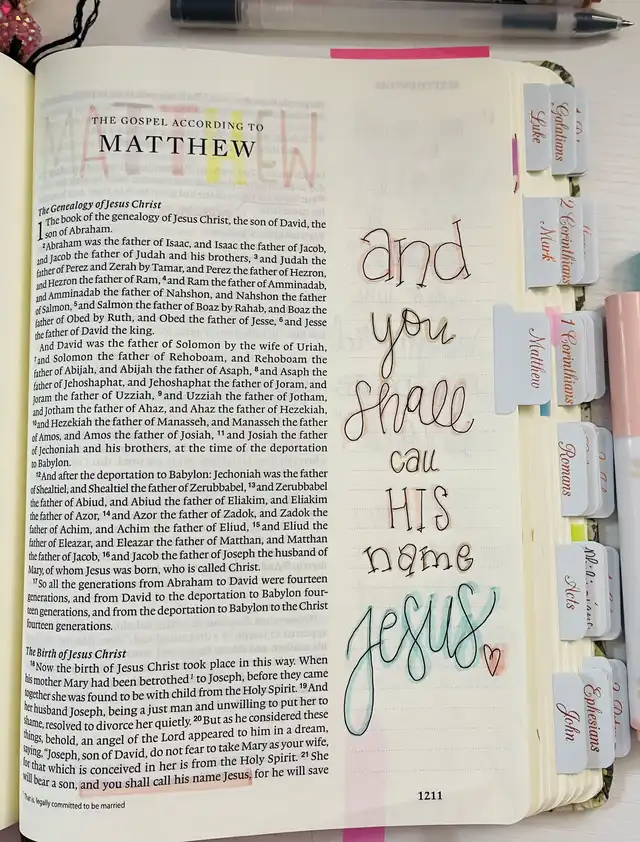 MATTHEW
THE GOSPEL ACCORDING TO
MATTHEW
The Genealogy of Jesus Christ
1 The book of the genealogy of Jesus Christ, the son of David, the
son of Abraham.
2 Abraham was the father of Isaac, and Isaac the father of Jacob,
and Jacob the father of Judah and his brothers, 3 and Judah the
father of Perez and Zerah by Tamar, and Perez the father of Hezron,
and Hezron the father of Ram, 4 and Ram the father of Amminadab,
and Amminadab the father of Nahshon, and Nahshon the father
of Salmon, 5 and Salmon the father of Boaz by Rahab, and Boaz the
father of Obed by Ruth, and Obed the father of Jesse, 6 and Jesse
the father of David the king.
And David was the father of Solomon by the wife of Uriah,
7 and Solomon the father of Rehoboam, and Rehoboam the
father of Abijah, and Abijah the father of Asaph, 8 and Asaph the
father of Jehoshaphat, and Jehoshaphat the father of Joram, and
Joram the father of Uzziah, 9 and Uzziah the father of Jotham,
and Jotham the father of Ahaz, and Ahaz the father of Hezekiah,
10 and Hezekiah the father of Manasseh, and Manasseh the father
of Amos, and Amos the father of Josiah, 11 and Josiah the father
of Jechoniah and his brothers, at the time of the deportation
to Babylon.
12 And after the deportation to Babylon: Jechoniah was the father
of Shealtiel, and Shealtiel the father of Zerubbabel, 13 and Zerubbabel
the father of Abiud, and Abiud the father of Eliakim, and Eliakim
the father of Azor, 14 and Azor the father of Zadok, and Zadok the
father of Achim, and Achim the father of Eliud, 15 and Eliud the
father of Eleazar, and Eleazar the father of Matthan, and Matthan
the father of Jacob, 16 and Jacob the father of Joseph the husband of
Mary, of whom Jesus was born, who is called Christ.
17 So all the generations from Abraham to David were fourteen
generations, and from David to the deportation to Babylon four-
teen generations, and from the deportation to Babylon to the Christ
fourteen generations.
The Birth of Jesus Christ
18 Now the birth of Jesus Christ took place in this way. When
his mother Mary had been betrothed1 to Joseph, before they came
together she was found to be with child from the Holy Spirit. 19 And
her husband Joseph, being a just man and unwilling to put her to
shame, resolved to divorce her quietly. 20 But as he considered these
things, behold, an angel of the Lord appeared to him in a dream,
saying, "Joseph, son of David, do not fear to take Mary as your wife,
for that which is conceived in her is from the Holy Spirit. 21 She
will bear a son, and you shall call his name Jesus, for he will save
That is, legally committed to be married
1211
and
you
shall
call
HIS
name
Jesus
Luke
Galatians
Mark
2 Corinthians
Matthew
1 Corinthians
Romans
Acts
John
Ephesians